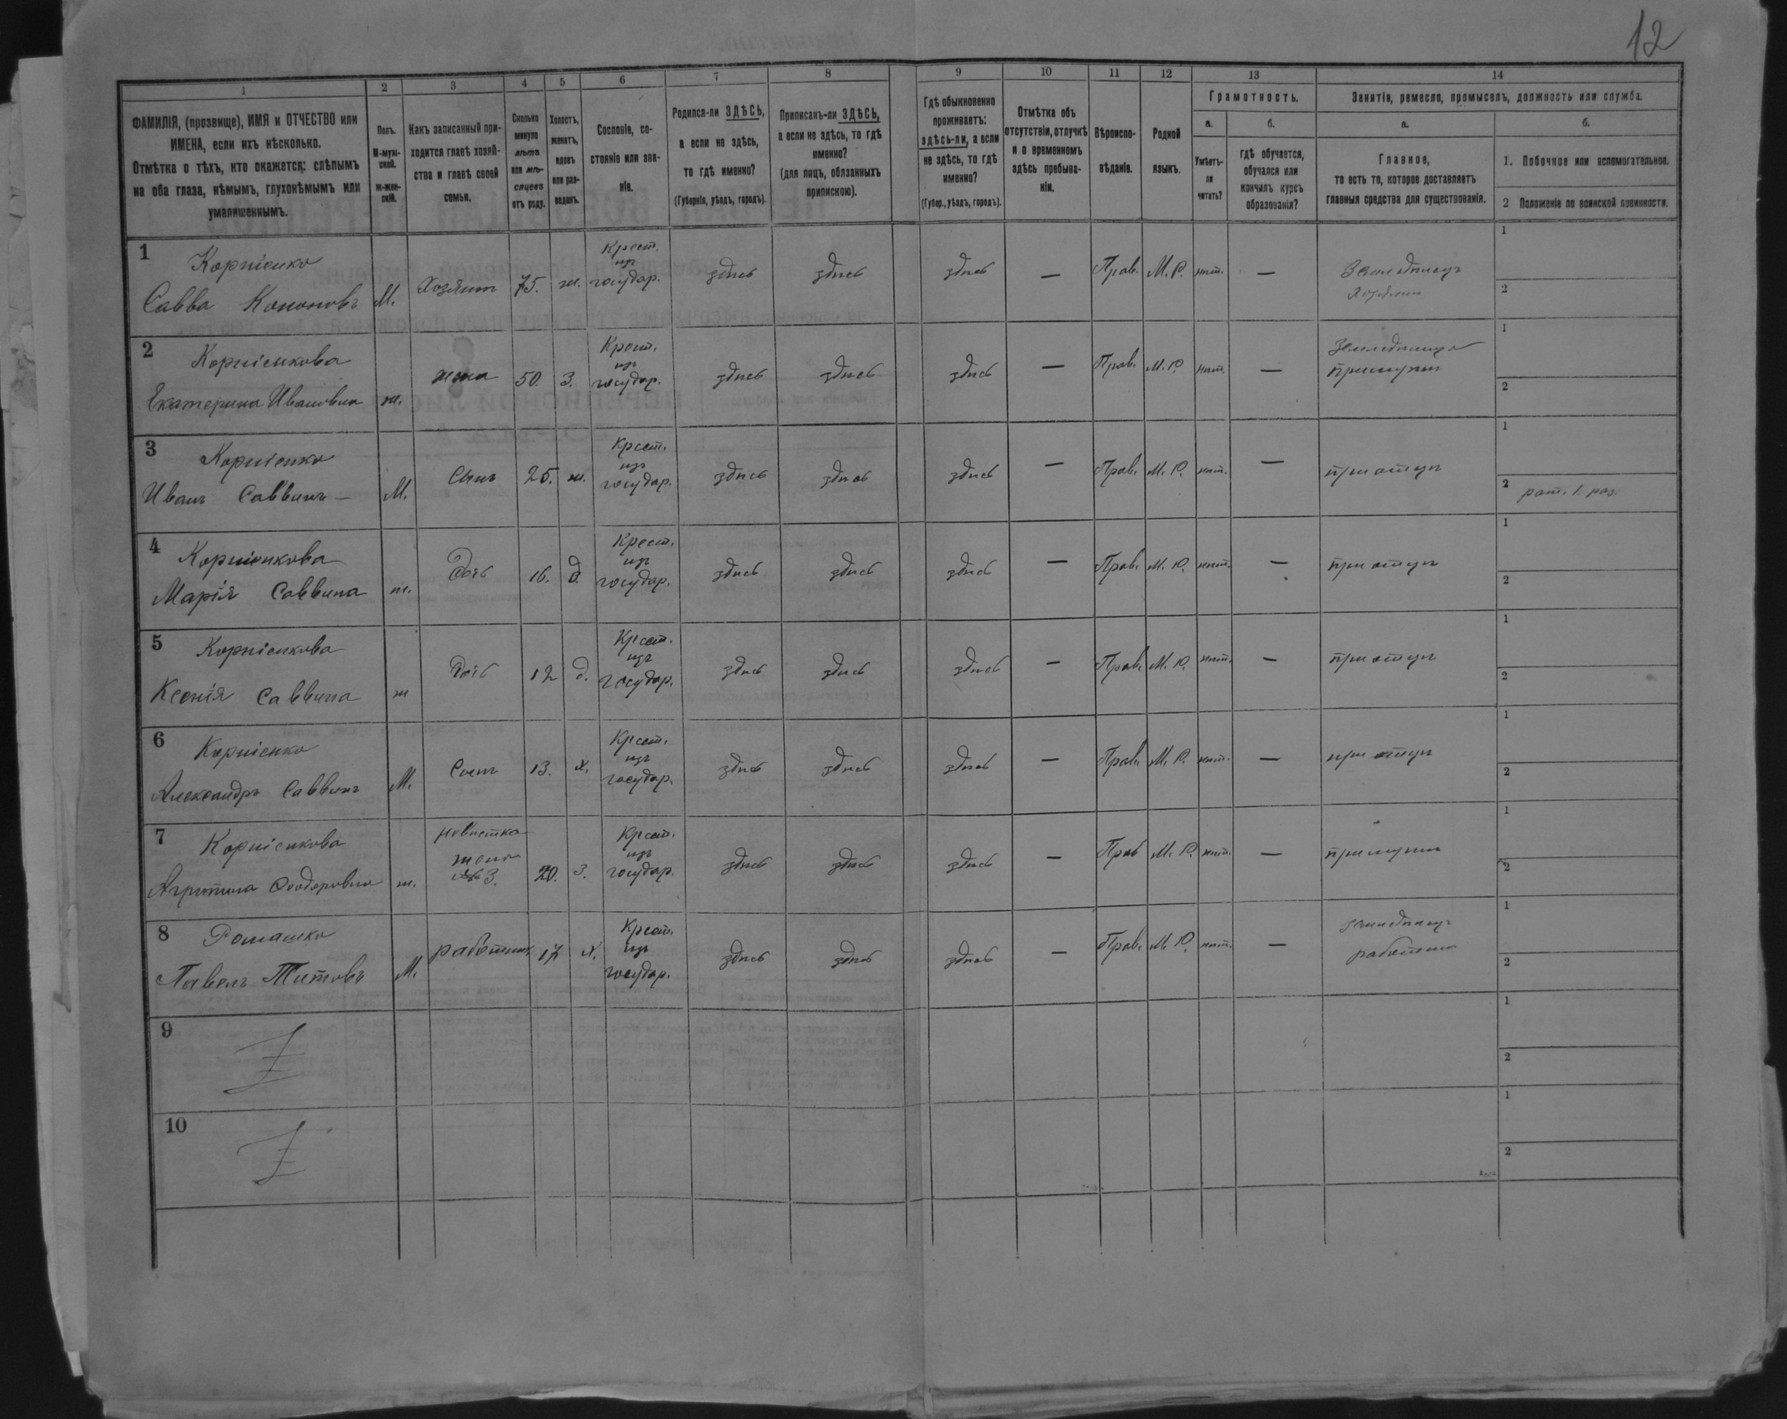 12
1 2 3 4 5 6 7 8 9 10 11 12 13 14
ФАМИЛІЯ, (прозвище), ИМЯ и ОТЧЕСТВО или
ИМЕНА, если ихъ нѣсколько.
Отмѣтка о тѣхъ, кто окажется: слѣпымъ
на оба глаза, нѣмымъ, глухонѣмымъ или
умалишеннымъ.
Полъ.
М-муж-
ской.
ж-жен-
скій.
Какъ записанный при-
ходится главѣ хозяй-
ства и главѣ своей
семьи.
Сколько
минуло
лѣтъ
или мѣ-
сяцевъ
отъ роду.
Холостъ,
женатъ,
вдовъ
или раз-
веденъ.
Сословіе, со-
стояніе или зва-
ніе.
Родился-ли ЗДѢСЬ,
а если не здѣсь,
то гдѣ именно?
(Губернія, уѣздъ, городъ).
Приписанъ-ли ЗДѢСЬ,
а если не здѣсь, то гдѣ
именно?
(для лицъ, обязанныхъ
припискою).
Гдѣ обыкновенно
проживаетъ:
здѣсь-ли, а если
не здѣсь, то гдѣ
именно?
(Губер., уѣздъ, городъ).
Отмѣтка объ
отсутствіи, отлучкѣ
и о временномъ
здѣсь пребыва-
ніи.
Вѣроиспо-
вѣданіе.
Родной
языкъ.
Грамотность.
а.
Умѣетъ-
ли
читать?
б.
гдѣ обучается,
обучался или
кончилъ курсъ
образованія?
Занятіе, ремесло, промыселъ, должность или служба.
а.
Главное,
то есть то, которое доставляетъ
главныя средства для существованія.
б.
1. Побочное или вспомогательное.
2 Положеніе по воинской повинности.
1 Корніенко
Савва Кононовъ М. Хозяинъ 75. ж. Крест.
изъ
государ. здѣсь здѣсь здѣсь — Прав. М. Р. нѣт. — Земледѣлецъ
Хозяинъ
1
2
2 Корніенкова
Екатерина Ивановна ж. жена 50. З. Крест.
изъ
государ. здѣсь здѣсь здѣсь — Прав. М. Р. нѣт. — Земледѣлица
при мужѣ
1
2
3 Корніенко
Иванъ Саввинъ — М. Сынъ 25. ж. Крест.
изъ
государ. здѣсь здѣсь здѣсь — Прав. М. Р. нѣт. — при отцѣ
1
2 рат. 1. раз.
4 Корніенкова
Марія Саввина ж. Дочь 16. д. Крест.
изъ
государ. здѣсь здѣсь здѣсь — Прав. М. Р. нѣт. — при отцѣ
1
2
5 Корніенкова
Ксенія Саввина ж Дочь 12 д. Крест.
изъ
государ. здѣсь здѣсь здѣсь — Прав. М. Р. нѣт. — при отцѣ
1
2
6 Корніенко
Александръ Саввинъ М. Сынъ 13. х. Крест.
изъ
государ. здѣсь здѣсь здѣсь — Прав. М. Р. нѣт. — при отцѣ
1
2
7 Корніенкова
Агрипина Феодоровна ж. невѣстка
жена
№ 3. 20. З. Крест.
изъ
государ. здѣсь здѣсь здѣсь — Прав М. Р. нѣт. — при мужѣ
1
2
8 Ромашко
Павелъ Титовъ М. работник 17 х. Крест.
изъ
государ. здѣсь здѣсь здѣсь — Прав. М. Р. нѣт. — земледѣлецъ
работник
1
2
9
1
2
10
1
2